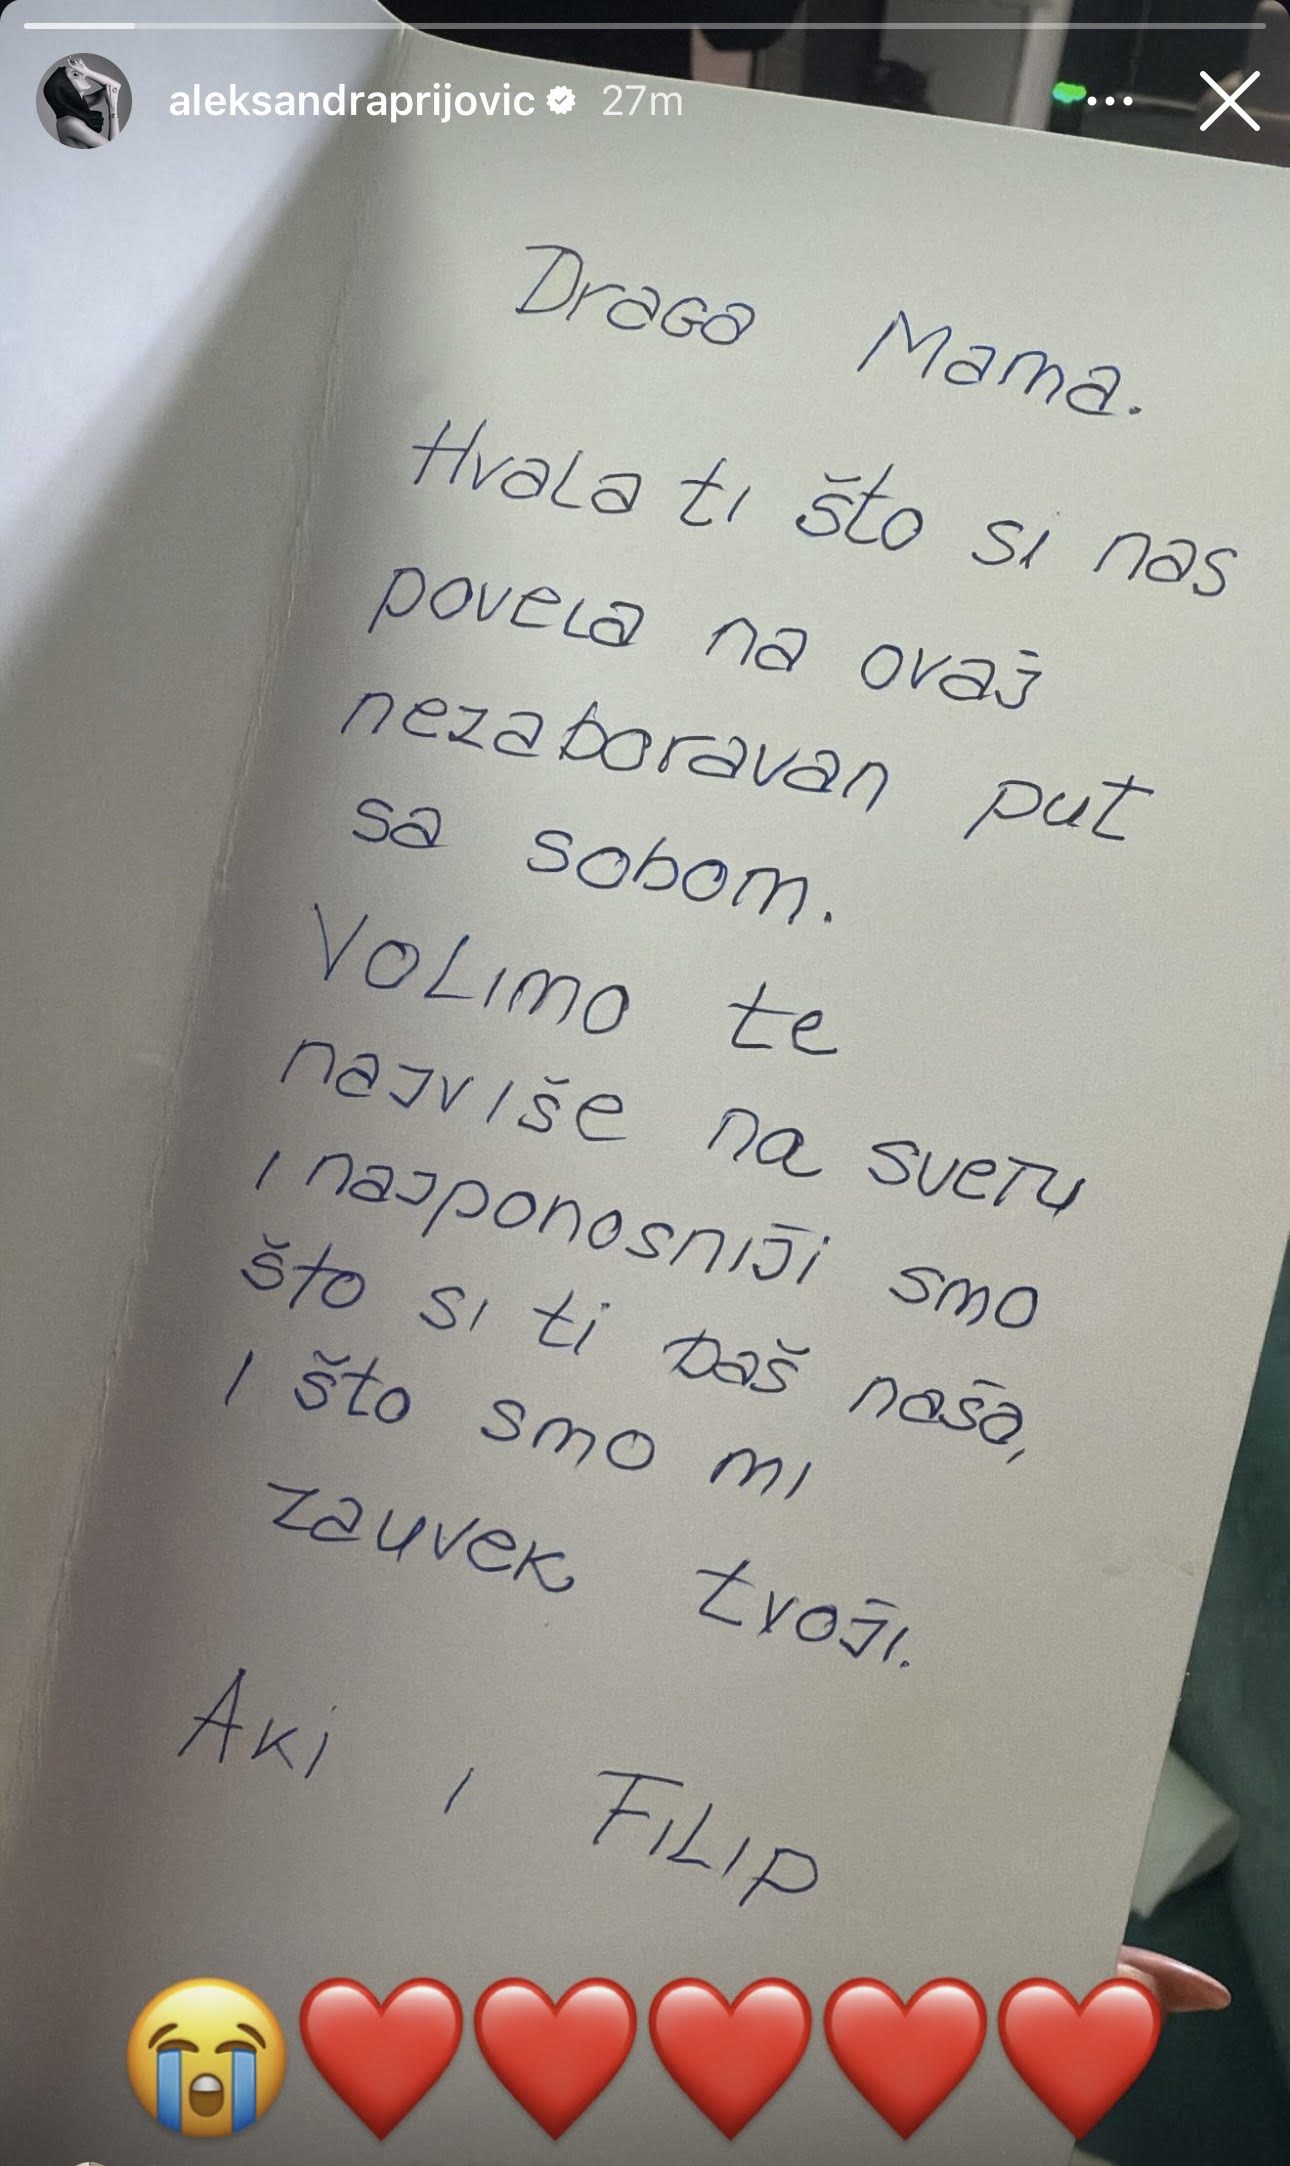 aleksandraprijovic 27m
Draga Mama.
Hvala ti što si nas
povela na ovaj
nezaboravan put
sa sobom.
Volimo te
najviše na svetu
i najponosniji smo
što si ti baš naša,
i što smo mi
zauvek tvoji.
Aki i Filip
😭❤️❤️❤️❤️❤️